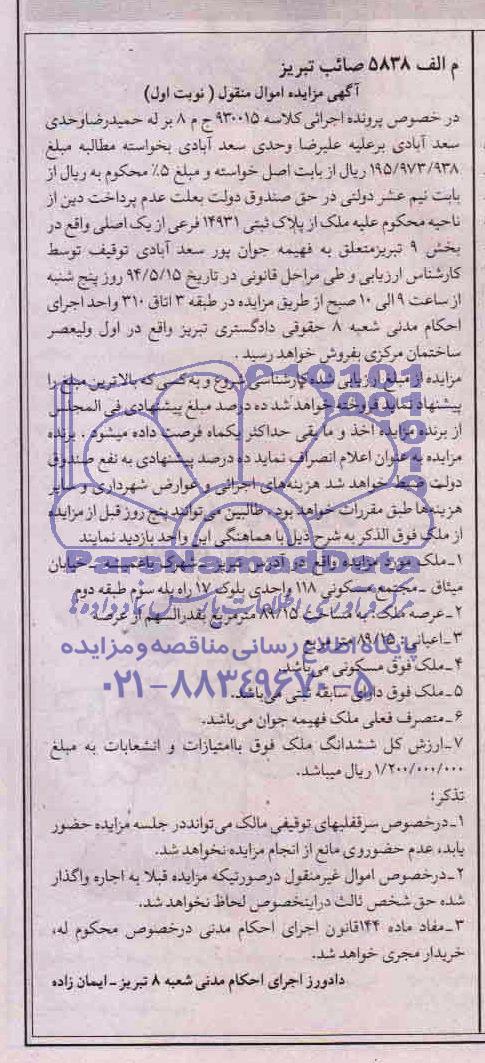 م الف ۵۸۳۸ صائب تبریز
آگهی مزایده اموال منقول ( نوبت اول)
در خصوص پرونده اجرائی کلاسه ۹۳۰۰۱۵ ج م ۸ بر له حمیدرضاوحدی
سعد آبادی برعلیه علیرضا وحدی سعد آبادی بخواسته مطالبه مبلغ
۱۹۵/۹۷۳/۹۳۸ ریال از بابت اصل خواسته و مبلغ ۵٪ محکوم به ریال از
بابت نیم عشر دولتی در حق صندوق دولت بعلت عدم پرداخت دین از
ناحیه محکوم علیه ملک از پلاک ثبتی ۱۴۹۳۱ فرعی از یک اصلی واقع در
بخش ۹ تبریزمتعلق به فهیمه جوان پور سعد آبادی توقیف توسط
کارشناس ارزیابی و طی مراحل قانونی در تاریخ ۹۴/۵/۱۵ روز پنج شنبه
از ساعت ۹ الی ۱۰ صبح از طریق مزایده در طبقه ۳ اتاق ۳۱۰ واحد اجرای
احکام مدنی شعبه ۸ حقوقی دادگستری تبریز واقع در اول ولیعصر
ساختمان مرکزی بفروش خواهد رسید .
مزایده از مبلغ ارزیابی شده کارشناسی شروع و به کسی که بالاترین مبلغ را
پیشنهاد نماید فروخته خواهد شد ده درصد مبلغ پیشنهادی فی المجلس
از برنده مزایده اخذ و ما بقی حداکثر یکماه فرصت داده میشود . برنده
مزایده به عنوان اعلام انصراف نماید ده درصد پیشنهادی به نفع صندوق
دولت ضبط خواهد شد هزینه‌های اجرائی و عوارض شهرداری و سایر
هزینه‌ها طبق مقررات خواهد بود . طالبین می‌توانند پنج روز قبل از مزایده
از ملک فوق الذکر به شرح ذیل با هماهنگی این واحد بازدید نمایند
۱ـ ملک مورد مزایده واقع در آدرس تبریز ـ شهرک باغمیشه ـ خیابان
میثاق ـ مجتمع مسکونی ۱۱۸ واحدی بلوک ۱۷ راه پله سوم طبقه دوم
۲ـ عرصه ملک: به مساحت ۸۹/۱۵ مترمربع بقدرالسهم از عرصه
۳ـ اعیانی: ۸۹/۱۵ متر مربع
۴ـ ملک فوق مسکونی می‌باشد.
۵ـ ملک فوق دارای سابقه ثبتی می‌باشد.
۶ـ متصرف فعلی ملک فهیمه جوان می‌باشد.
۷ـ ارزش کل ششدانگ ملک فوق باامتیازات و انشعابات به مبلغ
۱/۲۰۰/۰۰۰/۰۰۰ ریال میباشد.
تذکر:
۱ـ درخصوص سرقفلیهای توقیفی مالک می‌توانددر جلسه مزایده حضور
یابد، عدم حضوروی مانع از انجام مزایده نخواهد شد.
۲ـ درخصوص اموال غیرمنقول درصورتیکه مزایده قبلا به اجاره واگذار
شده حق شخص ثالث دراینخصوص لحاظ نخواهد شد.
۳ـ مفاد ماده ۱۴۴قانون اجرای احکام مدنی درخصوص محکوم له،
خریدار مجری خواهد شد.
دادورز اجرای احکام مدنی شعبه ۸ تبریز ـ ایمان زاده
ParsNamadData
پایگاه اطلاع رسانی مناقصه و مزایده
۰۲۱-۸۸۳۴۹۶۷۰-۵